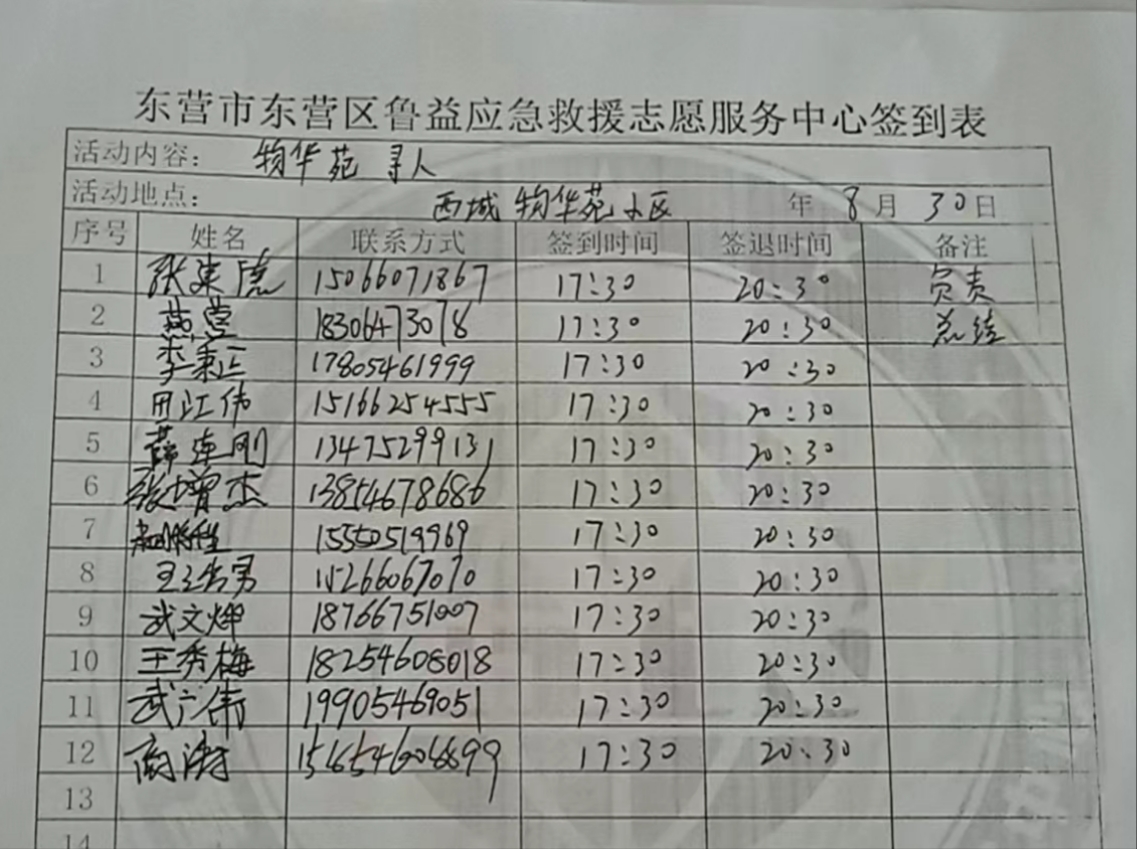 东营市东营区鲁益应急救援志愿服务中心签到表
活动内容： 物华苑 寻人
活动地点： 西城 物华苑小区 年 8月 30日
序号 姓名 联系方式 签到时间 签退时间 备注
1 张建虎 15066071867 17:30 20:30 负责
2 燕莹 18306473078 17:30 20:30 总结
3 李秉正 17805461999 17:30 20:30
4 田江伟 15166254555 17:30 20:30
5 薛连刚 13475299131 17:30 20:30
6 张增杰 13854678686 17:30 20:30
7 15550519969 17:30 20:30
8 15266067070 17:30 20:30
9 武文烨 18766751007 17:30 20:30
10 王秀梅 18254608018 17:30 20:30
11 武广伟 19905469051 17:30 20:30
12 17:30 20:30
13
14